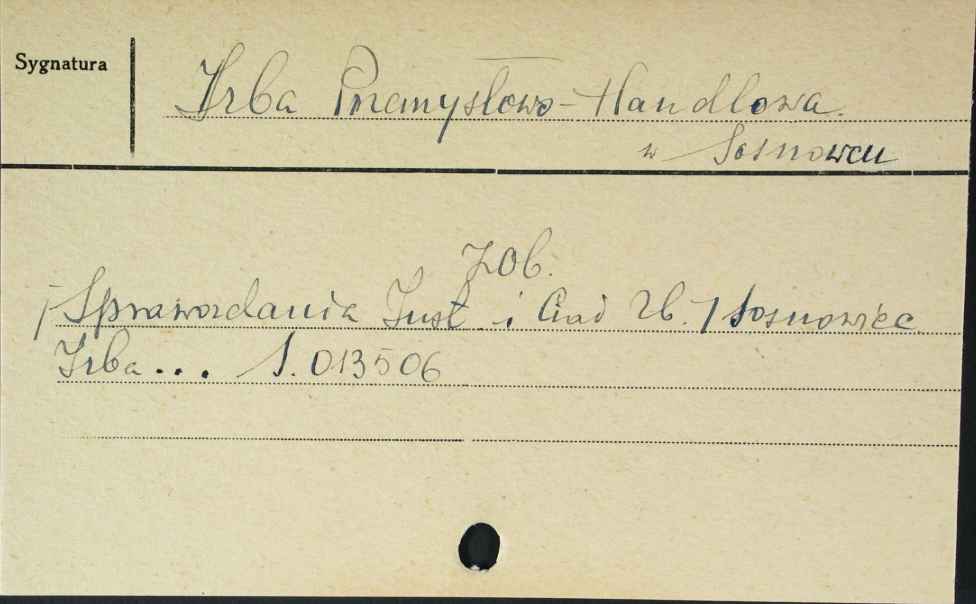 Sygnatura
Izba Przemysłowo-Handlowa.
w Sosnowcu
zob.
/Sprawozdania Inst. i Ciał Zb./ Sosnowiec
Izba... S. 013506